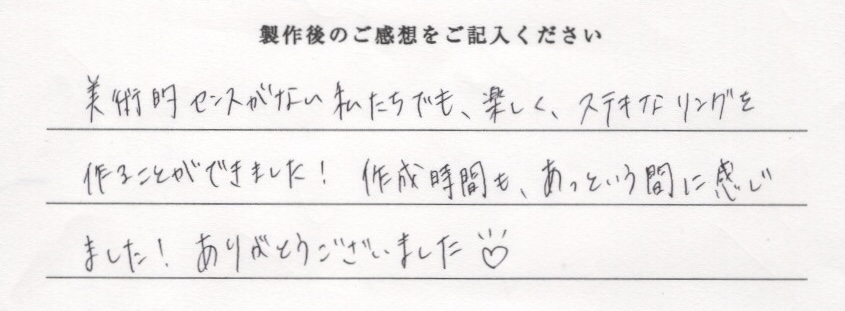 製作後のご感想をご記入ください
美術的センスがない私たちでも、楽しく、ステキなリングを
作ることができました! 作成時間も、あっという間に感じ
ました! ありがとうございました♡